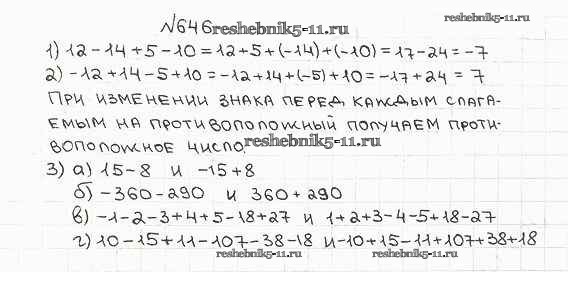 reshebnik5-11.ru
№646 reshebnik5-11.ru
1) 12-14+5-10=12+5+(-14)+(-10)=17-24=-7
2) -12+14-5+10=-12+14+(-5)+10=-17+24=7
ПРИ ИЗМЕНЕНИИ ЗНАКА ПЕРЕД КАЖДЫМ СЛАГА-
ЕМЫМ НА ПРОТИВОПОЛОЖНЫЙ ПОЛУЧАЕМ ПРОТИ-
ВОПОЛОЖНОЕ ЧИСЛО. reshebnik5-11.ru
3) а) 15-8 и -15+8
б) -360-290 и 360+290
в) -1-2-3+4+5-18+27 и 1+2+3-4-5+18-27
г) 10-15+11-107-38-18 и -10+15-11+107+38+18
reshebnik5-11.ru reshebnik5-11.ru